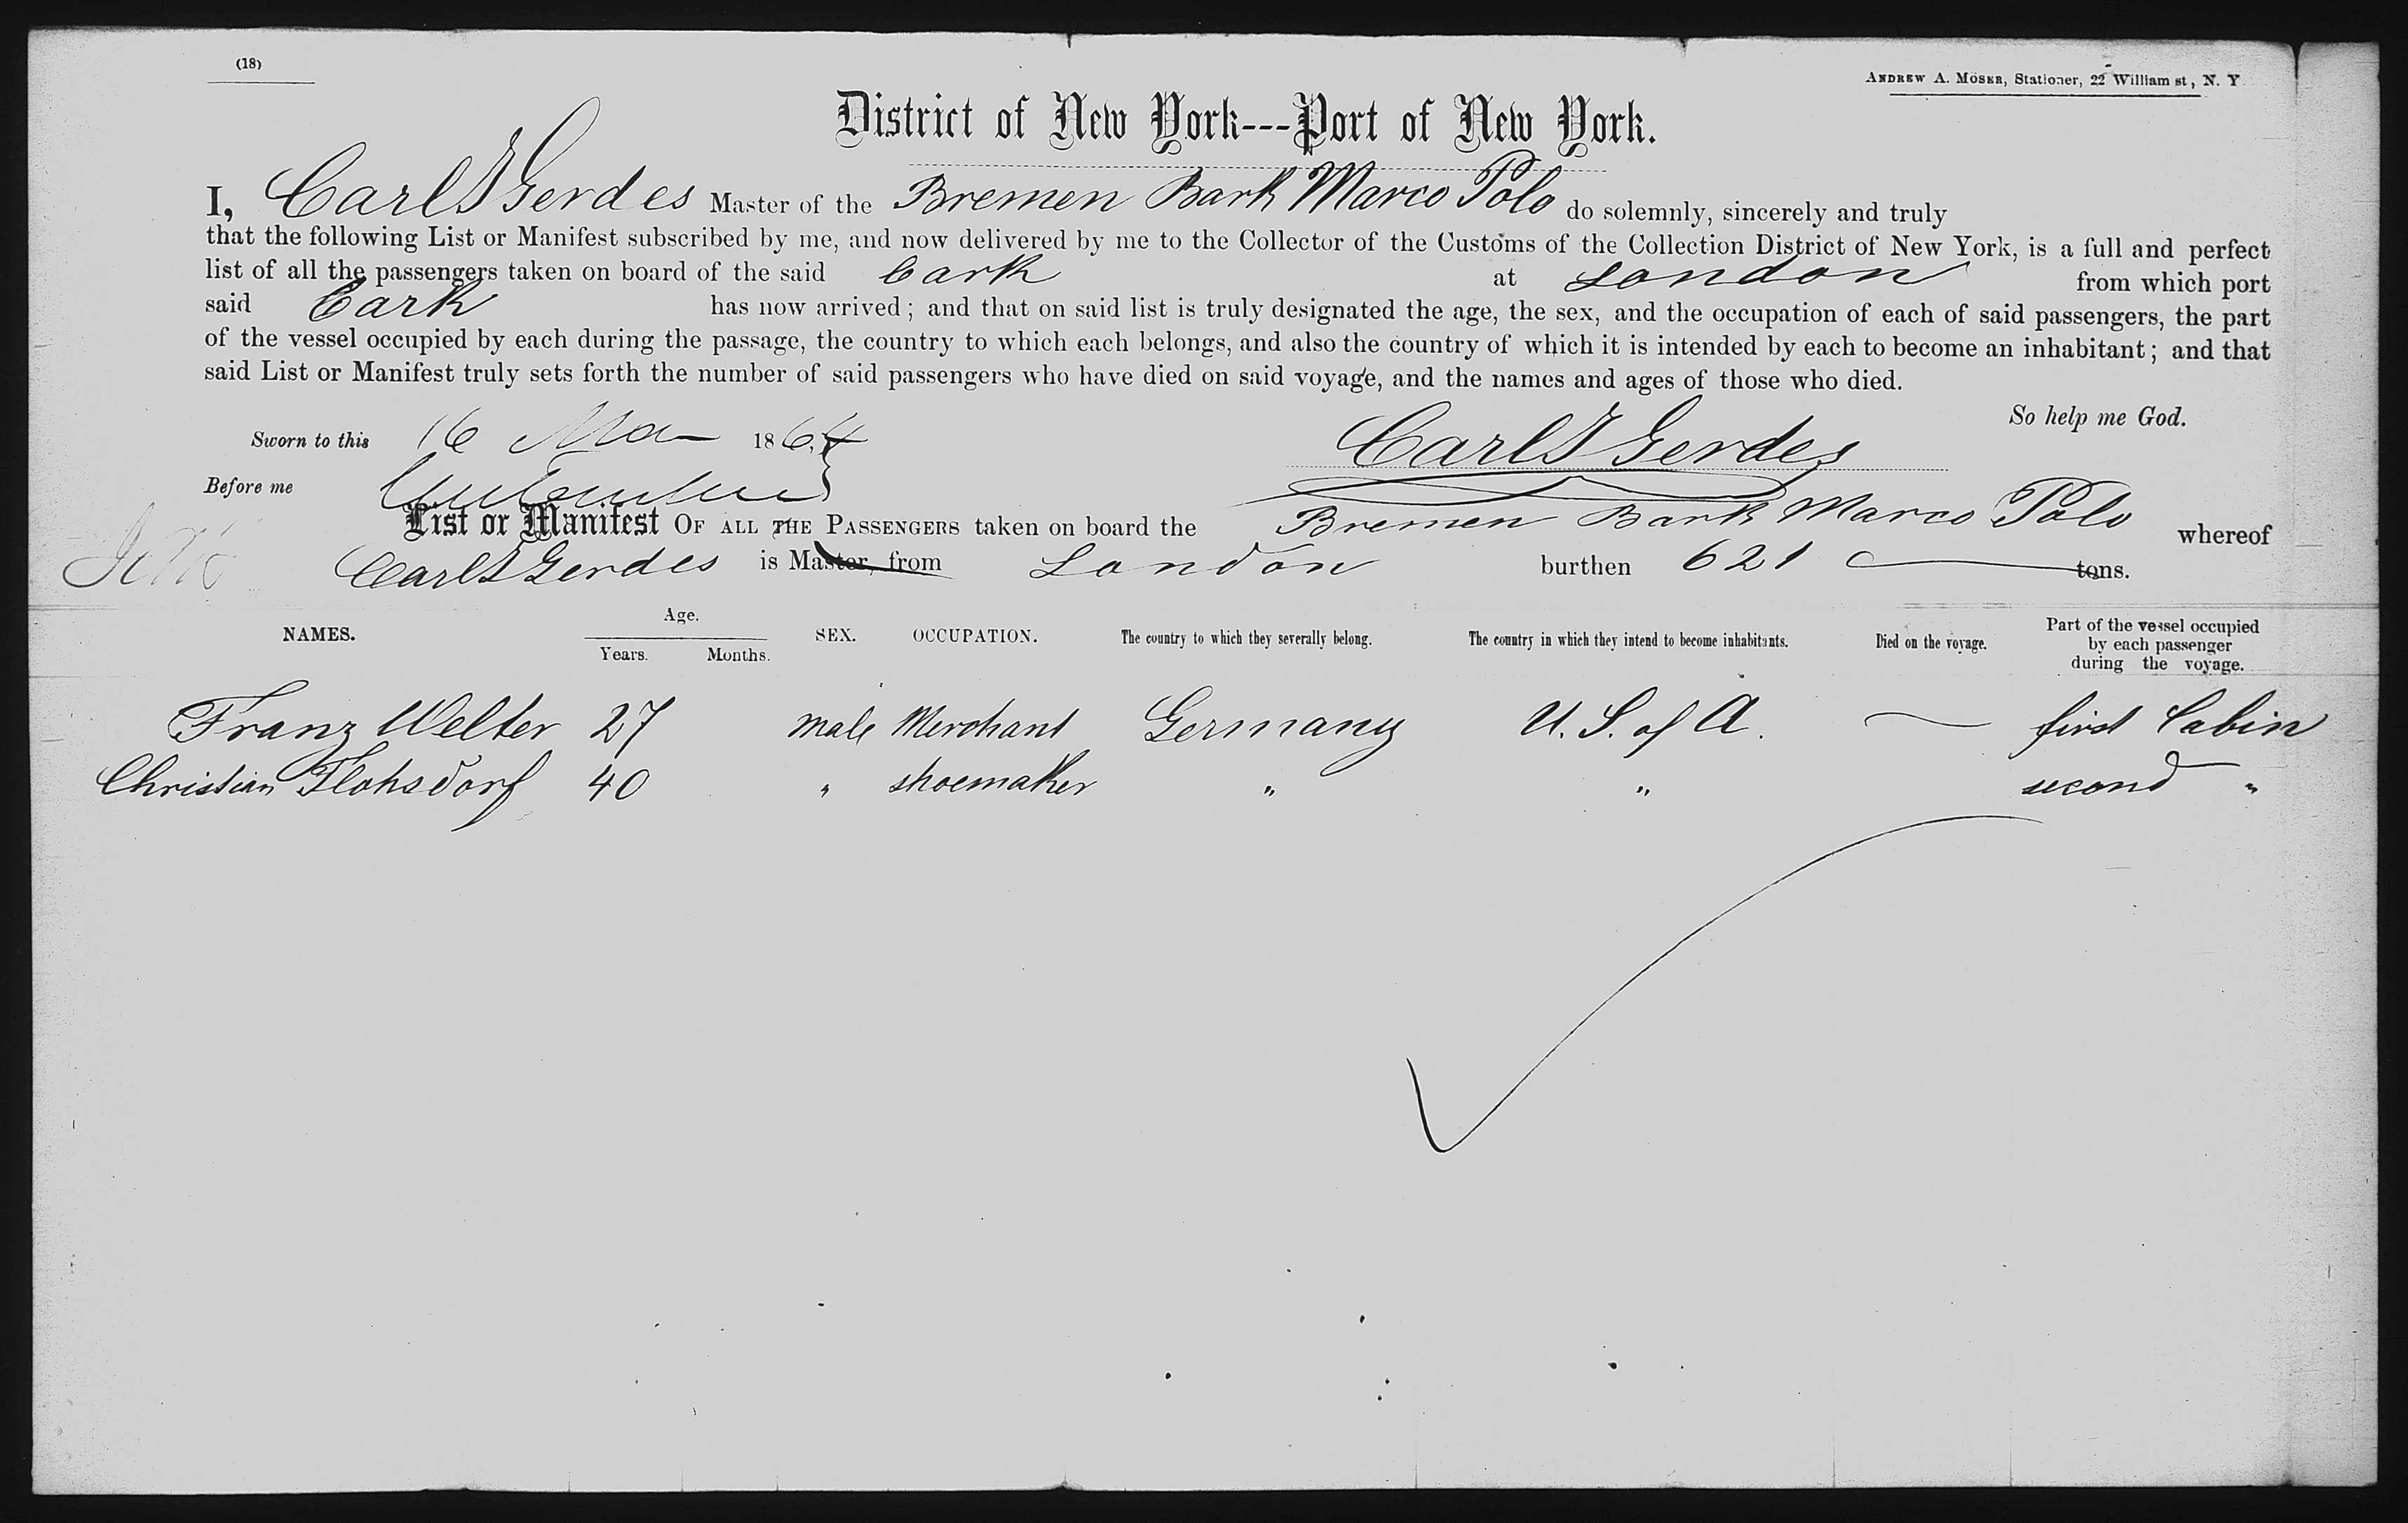 (18)
ANDREW A. MOSER, Stationer, 22 William st, N. Y
District of New York---Port of New York.
I, Carl J Gerdes Master of the Bremen Bark Marco Polo do solemnly, sincerely and truly
that the following List or Manifest subscribed by me, and now delivered by me to the Collector of the Customs of the Collection District of New York, is a full and perfect
list of all the passengers taken on board of the said bark at London from which port
said bark has now arrived; and that on said list is truly designated the age, the sex, and the occupation of each of said passengers, the part
of the vessel occupied by each during the passage, the country to which each belongs, and also the country of which it is intended by each to become an inhabitant; and that
said List or Manifest truly sets forth the number of said passengers who have died on said voyage, and the names and ages of those who died.
So help me God.
Sworn to this 16 Ma 1864 Carl J Gerdes
Before me
List or Manifest OF ALL THE PASSENGERS taken on board the Bremen Bark Marco Polo whereof
Carl J Gerdes is Master, from London burthen 621 tons.
NAMES. Age. Years. Months. SEX. OCCUPATION. The country to which they severally belong. The country in which they intend to become inhabitants. Died on the voyage. Part of the vessel occupied by each passenger during the voyage.
Franz Welter 27 male Merchant Germany U. S. of A. — first Cabin
Christian Flohsdorf 40 " shoemaker " " second "